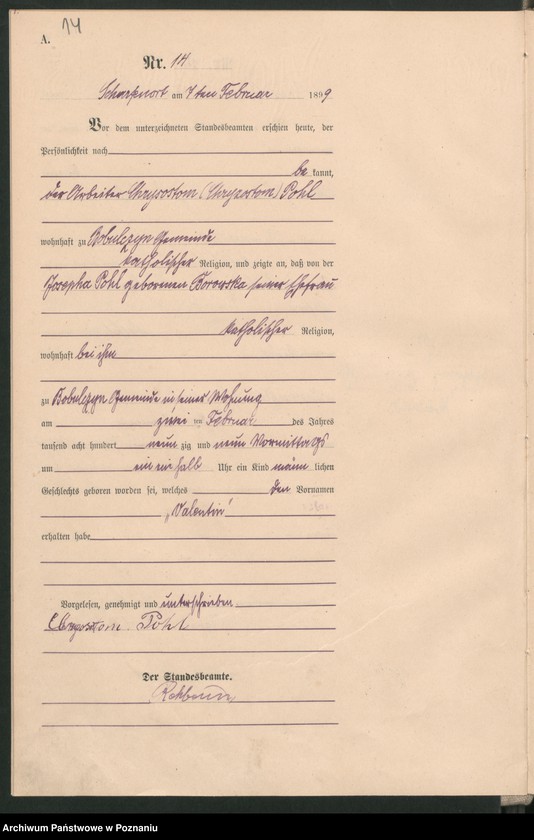 14
A.
Nr. 14
Scharfenort am 7ten Februar 1899
Vor dem unterzeichneten Standesbeamten erschien heute, der
Persönlichkeit nach
be kannt,
der Arbeiter Chrysostom (Chryzostom) Pohl
wohnhaft zu Bobulczyn Gemeinde
katholischer Religion, und zeigte an, daß von der
Josepha Pohl geborenen Borowska seiner Ehefrau
katholischer Religion,
wohnhaft bei ihm
zu Bobulczyn Gemeinde in seiner Wohnung
am zwei ten Februar des Jahres
tausend acht hundert neun zig und neun Vormittags
um ein ein halb Uhr ein Kind männ lichen
Geschlechts geboren worden sei, welches den Vornamen
„Valentin“
erhalten habe
Vorgelesen, genehmigt und unterschrieben
Pohl
Der Standesbeamte.
Archiwum Państwowe w Poznaniu